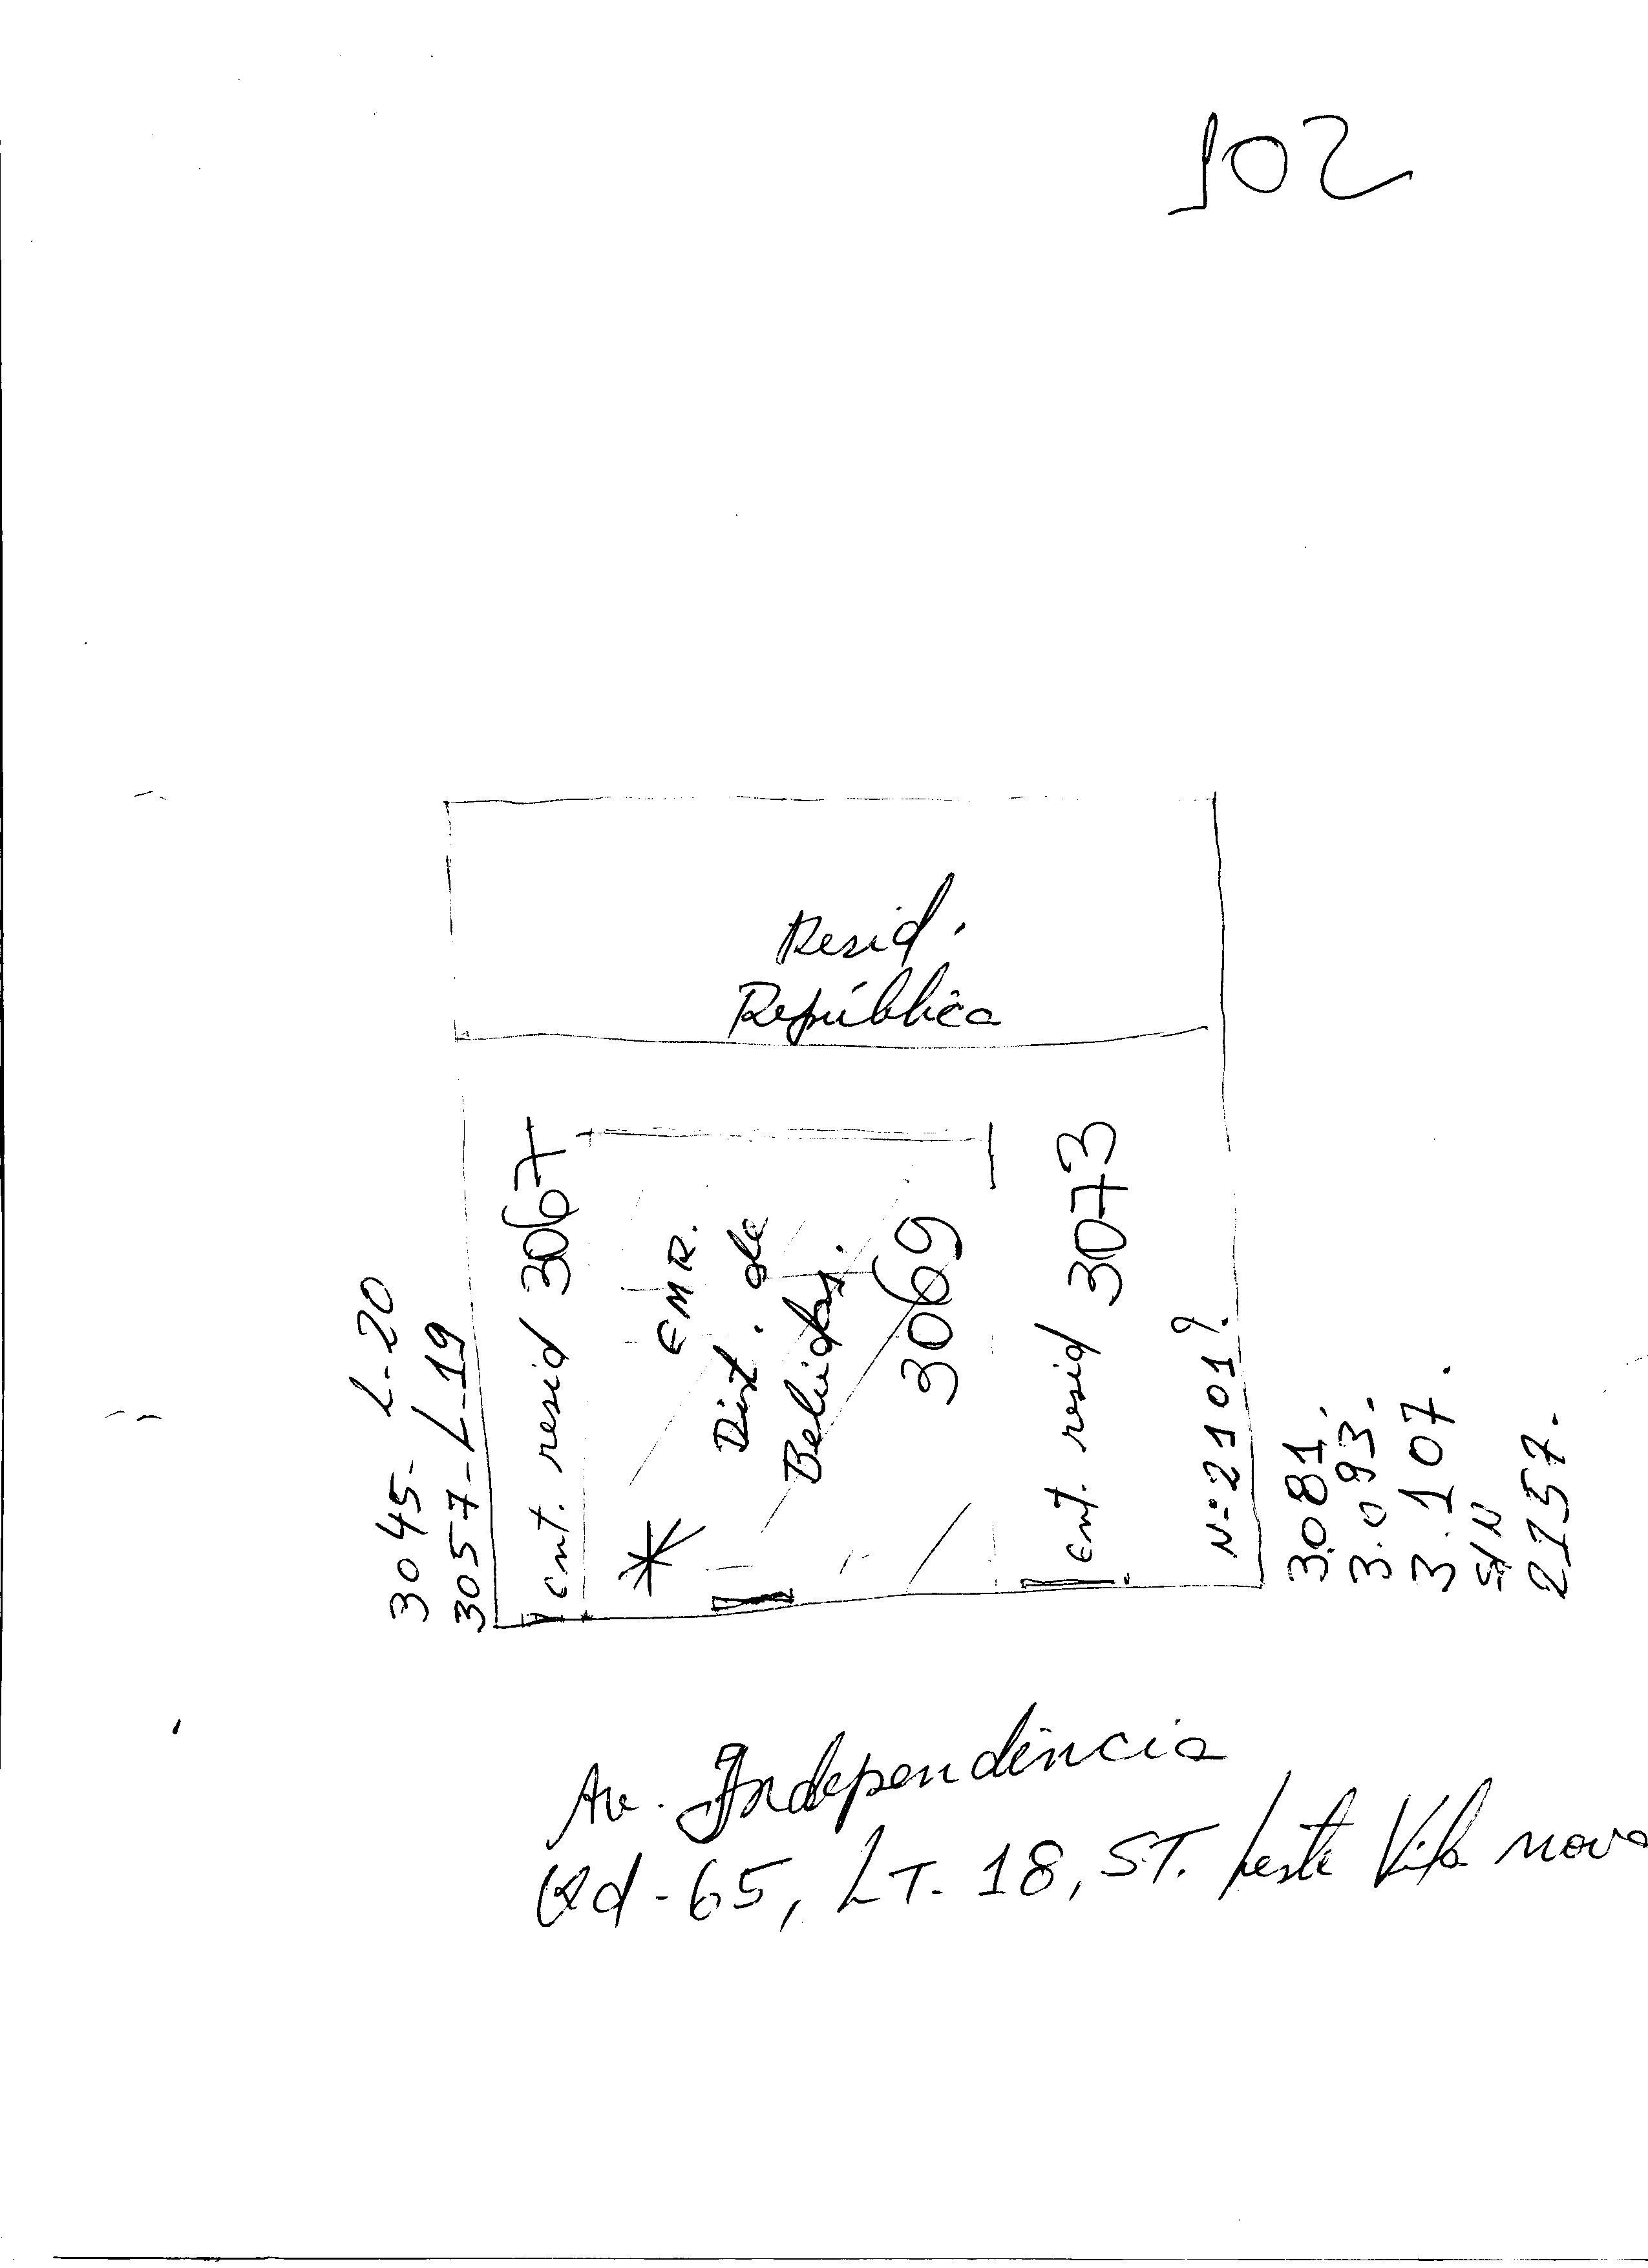 102
Resid.
República
3045- L-20
3057-L-19
ent. resid 3067
EMR.
Dist. de
Bebidas.
3069
ent. resid 3073
N: 2101?
3.081.
3.093.
3.107.
S/N
2157.
Av. Independência
Qd-65, LT. 18, ST. Leste Vila nova